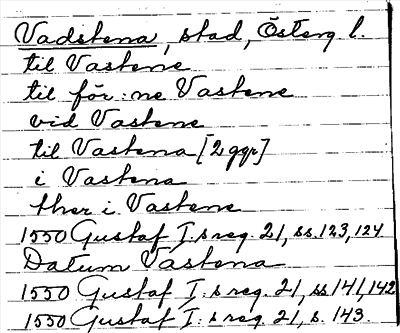 Vadstena, stad, Österg l.
til Vastene
til för:ne Vastene
vid Vastene
til Vastena [2 ggr]
i Vastena
ther i Vastene
1550 Gustaf I:s reg. 21, ss. 123, 124
Datum Vastena
1550 Gustaf I:s reg. 21, ss. 141, 142
1550 Gustaf I:s reg. 21, s. 143.